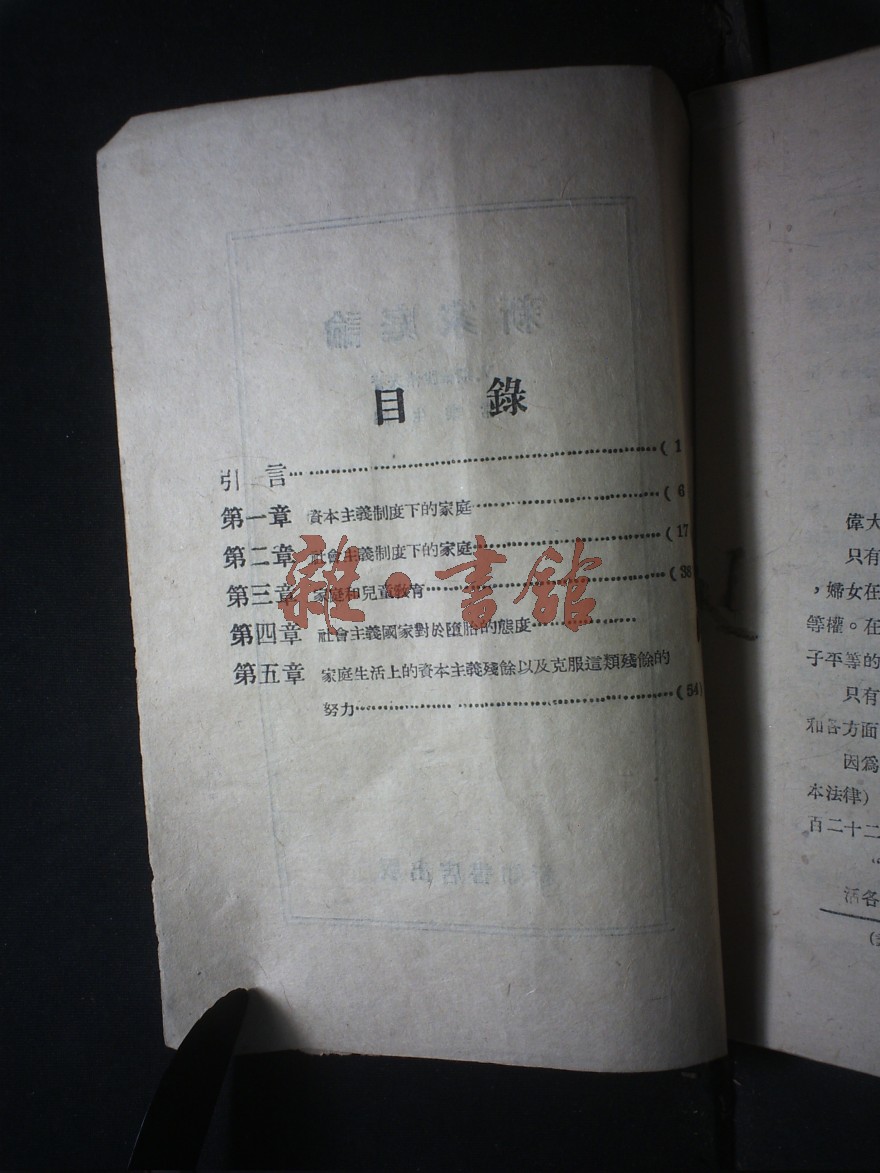 目錄
引言…………………………………………( 1
第一章 資本主義制度下的家庭……………………( 6
第二章 社會主義制度下的家庭……………………( 17
第三章 家庭和兒童教育……………………………( 38
第四章 社會主義國家對於墮胎的態度……………
第五章 家庭生活上的資本主義殘餘以及克服這類殘餘的
努力……………………………………( 54)
雜·書館
新家庭論
書店出
偉大
只有
，婦女在
等權。在
子平等的
只有
和各方面
因爲
本法律）
百二十二
“
活各